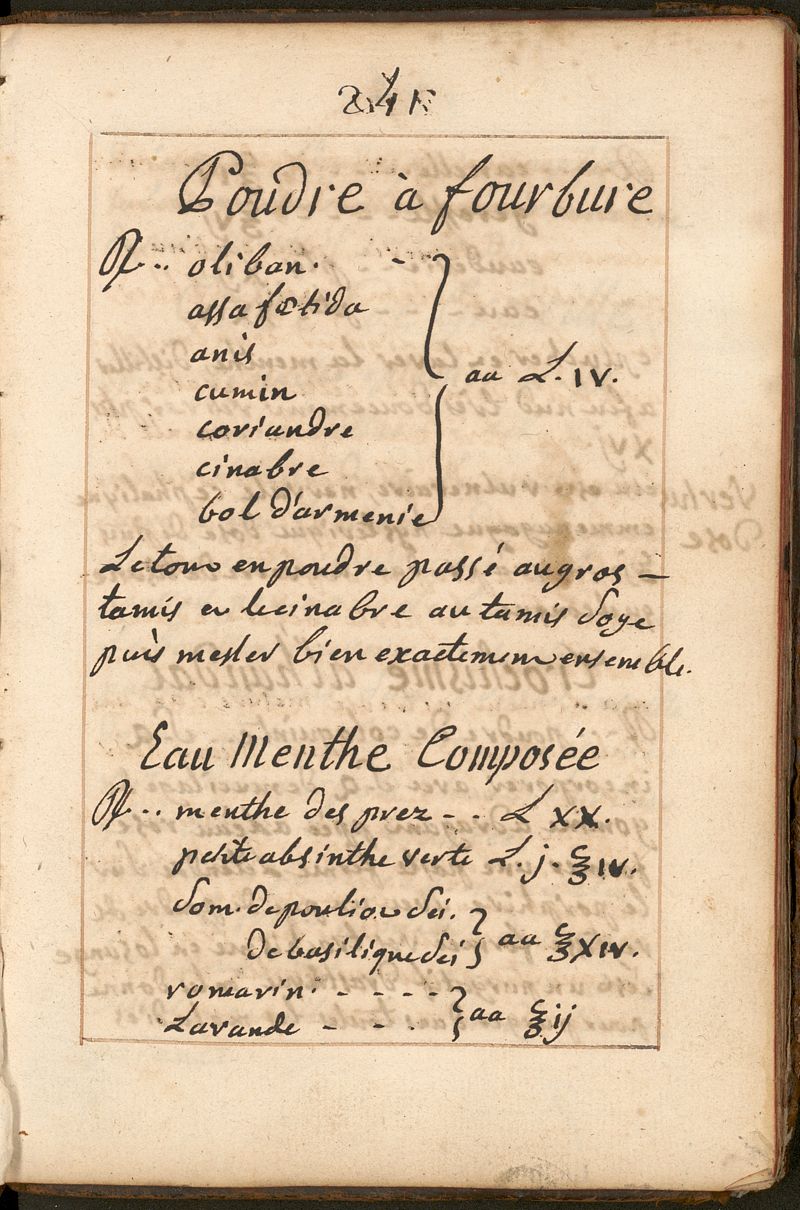 Poudre à fourbure
℞.. oliban. -
assa fœtida
anis
cumin
coriandre
cinabre
bol d'armenie
aa L. IV.
Le tout en poudre passé au gros —
tamis et le cinabre au tamis soye
puis mesler bien exactement ensemble.
Eau Menthe Composée
℞.. menthe des prez - . L XX.
petite absinthe verte L. j. ℥ IV.
som. de pouliot sei.
de basilique sei aa ℥ XIV.
romarin. - - - -
Lavande - - . aa ℥ ij